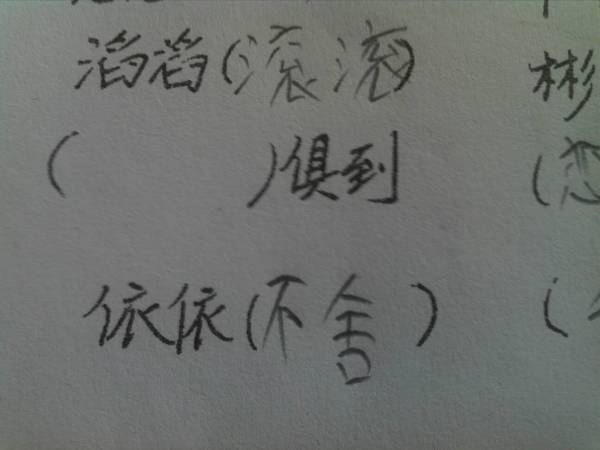 滔滔(滚滚) 彬
( )俱到 (恋
依依(不舍) (